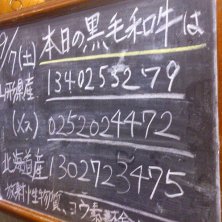 9/7(土)本日の黒毛和牛は
山形県産 1340253279
(メス) 0252024472
北海道産 1302723475
放射性物質、ヨウ素